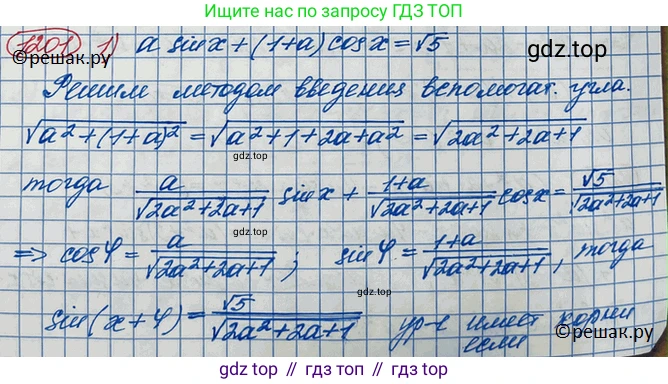 Ищите по запросу ГДЗ ТОП
1201 1) a sin x + (1+a) cos x = √5
gdz.top
©решак.ру
Решим методом введения вспомогат. угла.
√(a²+(1+a)²) = √(a²+1+2a+a²) = √(2a²+2a+1)
gdz.top
тогда a/√(2a²+2a+1) sin x + (1+a)/√(2a²+2a+1) cos x = √5/√(2a²+2a+1)
⇒ cos φ = a/√(2a²+2a+1); sin φ = (1+a)/√(2a²+2a+1), тогда
sin(x+φ) = √5/√(2a²+2a+1) ур-е имеет корни
если
©решак.ру
gdz.top // гдз.топ // gdz.top // гдз.топ